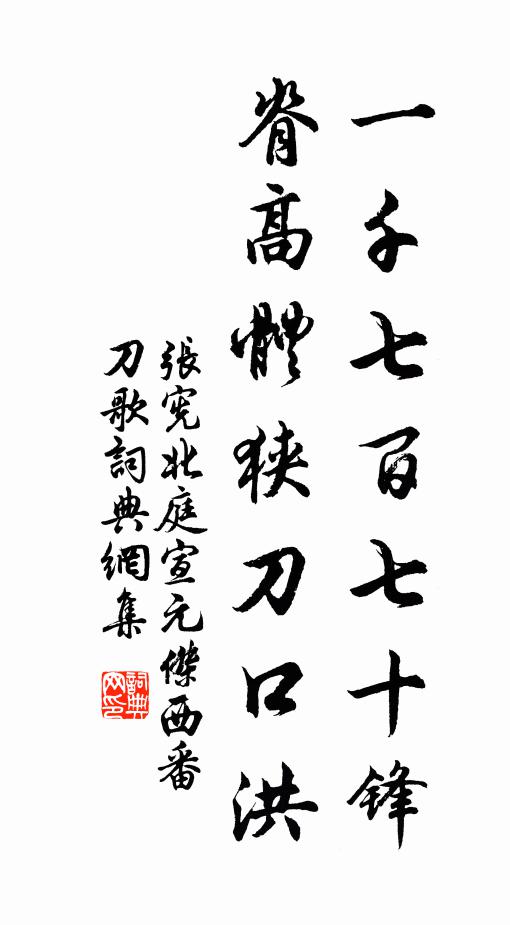 一千七百七十鋒
脊高體狹刀口洪
張憲北庭宣元傑西番
刀歌詞典網集
詞典网印